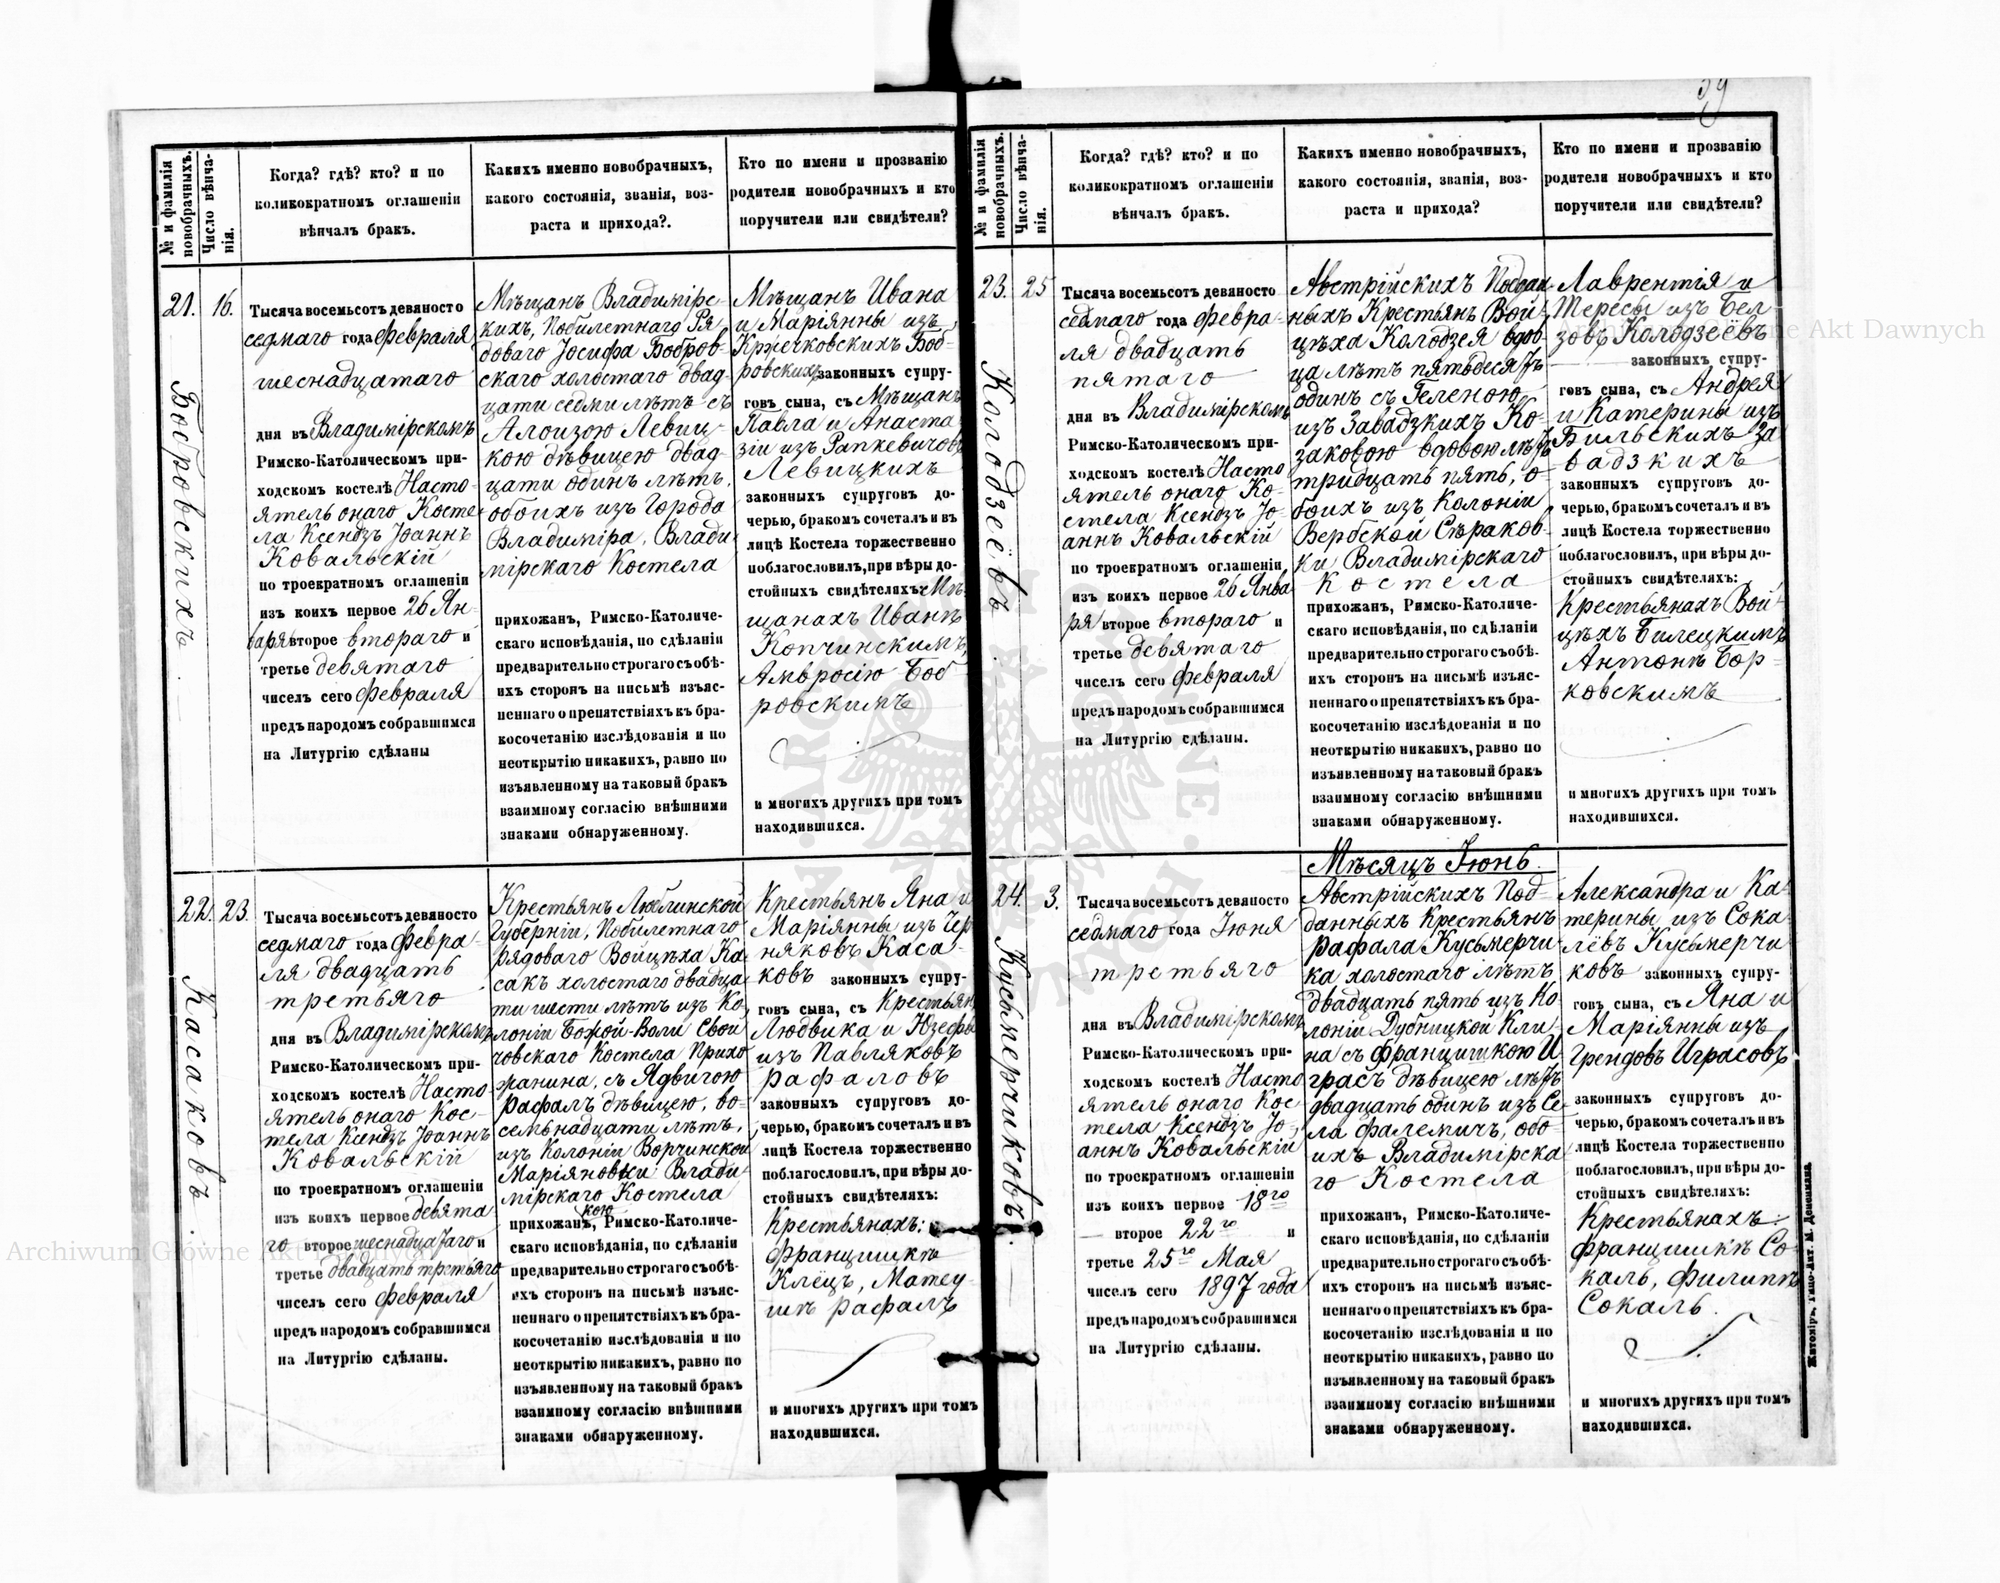 39
№ и фамилія новобрачныхъ.
Число вѣнчанія.
Когда? гдѣ? кто? и по
коликократномъ оглашеніи
вѣнчалъ бракъ.
Какихъ именно новобрачныхъ,
какого состоянія, званія, воз-
раста и прихода?.
Кто по имени и прозванію
родители новобрачныхъ и кто
поручители или свидѣтели?
21.
Бобровскихъ
16.
Тысяча восемьсотъ девяносто
седмаго года Февраля
шеснадцатаго
дня въ Владимірскомъ
Римско-Католическомъ при-
ходскомъ костелѣ Насто-
ятель онаго Косте-
ла Ксендзъ Іоаннъ
Ковальскій
по троекратномъ оглашеніи
изъ коихъ первое 26 Ян-
варя второе втораго и
третье девятаго
чиселъ сего Февраля
предъ народомъ собравшимся
на Литургію сдѣланы
Мѣщанъ Владимірс-
кихъ, Побилетнаго Ря
доваго Іосифа Бобров-
скаго холостаго двад-
цати седми лѣтъ съ
Алоизою Левиц-
кою дѣвицею двад-
цати одинъ лѣтъ,
обоихъ изъ Города
Владиміра, Влади-
мірскаго Костела
прихожанъ, Римско-Католиче-
скаго исповѣданія, по сдѣланіи
предварительно строгаго съ обѣ-
ихъ сторонъ на письмѣ изъяс-
неннаго о препятствіяхъ къ бра-
косочетанію изслѣдованія и по
неоткрытію никакихъ, равно по
изъявленному на таковый бракъ
взаимному согласію внѣшними
знаками обнаруженному.
Мѣщанъ Ивана
и Маріянны изъ
Кржечковскихъ Боб-
ровскихъ законныхъ супру-
говъ сына, съ Мѣщанъ
Павла и Анаста
зіи изъ Рапкевичовъ
Левицкихъ
законныхъ супруговъ до-
черью, бракомъ сочеталъ и въ
лицѣ Костела торжественно
поблагословилъ, при вѣры до-
стойныхъ свидѣтеляхъ: Мѣ-
щанахъ Иванѣ
Копчинскимъ,
Амвросію Боб
ровскимъ
и многихъ другихъ при томъ
находившихся.
22.
Касаковъ.
23.
Тысяча восемьсотъ девяносто
седмаго года Февра-
ля двадцать
третьяго
дня въ Владимірскомъ
Римско-Католическомъ при-
ходскомъ костелѣ Насто
ятель онаго Кос-
тела Ксендзъ Іоаннъ
Ковальскій
по троекратномъ оглашеніи
изъ коихъ первое девята
го второе шеснадцатаго и
третье двадцать третьяго
чиселъ сего Февраля
предъ народомъ собравшимся
на Литургію сдѣланы.
Крестьянъ Люблинской
Губерніи, Побилетнаго
рядоваго Войцѣха Ка
сакъ холостаго двадца
ти шести лѣтъ изъ Ко
лоніи Божой-Воли Свой
човскаго Костела Прихо
жанина, съ Ядвигою
Рафалъ дѣвицею, во-
семьнадцати лѣтъ,
изъ Колоніи Ворчинской
Маріяновки Влади-
мірскаго Костела
прихожанкою, Римско-Католиче-
скаго исповѣданія, по сдѣланіи
предварительно строгаго съ обѣ-
ихъ сторонъ на письмѣ изъяс-
неннаго о препятствіяхъ къ бра-
косочетанію изслѣдованія и по
неоткрытію никакихъ, равно по
изъявленному на таковый бракъ
взаимному согласію внѣшними
знаками обнаруженному.
Крестьянъ Яна и
Маріянны изъ Чер
няковъ Каса-
ковъ законныхъ супру-
говъ сына, съ Крестьян
Людвика и Юзефы
изъ Павляковъ
Рафаловъ
законныхъ супруговъ до-
черью, бракомъ сочеталъ и въ
лицѣ Костела торжественно
поблагословилъ, при вѣры до-
стойныхъ свидѣтеляхъ:
Крестьянахъ:
Францишкѣ
Клёцъ, Матеу-
шѣ Рафалъ
и многихъ другихъ при томъ
находившихся.
№ и фамилія новобрачныхъ.
Число вѣнчанія.
Когда? гдѣ? кто? и по
коликократномъ оглашеніи
вѣнчалъ бракъ.
Какихъ именно новобрачныхъ,
какого состоянія, званія, воз-
раста и прихода?
Кто по имени и прозванію
родители новобрачныхъ и кто
поручители или свидѣтели?
23.
Колодзеёвъ
25
Тысяча восемьсотъ девяносто
седмаго года Февра-
ля двадцать
пятаго
дня въ Владимірскомъ
Римско-Католическомъ при-
ходскомъ костелѣ Насто
ятель онаго Ко-
стела Ксендзъ Іо-
аннъ Ковальскій
по троекратномъ оглашеніи
изъ коихъ первое 26 Янва
ря второе втораго и
третье девятаго
чиселъ сего Февраля
предъ народомъ собравшимся
на Литургію сдѣланы.
Австрійскихъ Поддан-
ныхъ Крестьянъ Вой-
цѣха Колодзея вдов-
ца лѣтъ пятьдесятъ
одинъ съ Геленою
изъ Завадзкихъ Ко-
заковою вдовою лѣтъ
тридцать пять, о-
боихъ изъ Колоніи
Вербской Сѣраков-
ки Владимірскаго
Костела
прихожанъ, Римско-Католиче-
скаго исповѣданія, по сдѣланіи
предварительно строгаго съ обѣ-
ихъ сторонъ на письмѣ изъяс-
неннаго о препятствіяхъ къ бра-
косочетанію изслѣдованія и по
неоткрытію никакихъ, равно по
изъявленному на таковый бракъ
взаимному согласію внѣшними
знаками обнаруженному.
Лаврентія и
Тересы изъ Бел
зовъ Колодзеёвъ
законныхъ супру-
говъ сына, съ Андрея
и Катерины изъ
Бильскихъ За
вадзкихъ
законныхъ супруговъ до-
черью, бракомъ сочеталъ и въ
лицѣ Костела торжественно
поблагословилъ, при вѣры до-
стойныхъ свидѣтеляхъ:
Крестьянахъ Вой-
цѣхъ Билецкимъ
Антонѣ Бор-
ковскимъ
и многихъ другихъ при томъ
находившихся.
24.
Кусьмерчиковъ.
3.
Тысяча восемьсотъ девяносто
седмаго года Іюня
третьяго
дня въ Владимірскомъ
Римско-Католическомъ при-
ходскомъ костелѣ Насто
ятель онаго Кос-
тела Ксендзъ Іо-
аннъ Ковальскій
по троекратномъ оглашеніи
изъ коихъ первое 18го
второе 22го и
третье 25го Мая
чиселъ сего 1897 года
предъ народомъ собравшимся
на Литургію сдѣланы.
Мѣсяцъ Іюнь.
Австрійскихъ Под-
данныхъ Крестьянъ
Рафала Кусьмерчи-
ка холостаго лѣтъ
двадцать пять изъ Ко
лоніи Дубницкой Кли-
на съ Францишкою И
грасъ дѣвицею лѣтъ
двадцать одинъ изъ Се
ла Фалемичъ, обо-
ихъ Владимірска
го Костела
прихожанъ, Римско-Католиче-
скаго исповѣданія, по сдѣланіи
предварительно строгаго съ обѣ-
ихъ сторонъ на письмѣ изъяс-
неннаго о препятствіяхъ къ бра-
косочетанію изслѣдованія и по
неоткрытію никакихъ, равно по
изъявленному на таковый бракъ
взаимному согласію внѣшними
знаками обнаруженному.
Александра и Ка-
терины изъ Сока-
лёвъ Кусьмерчи-
ковъ законныхъ супру-
говъ сына, съ Яна и
Маріянны изъ
Грендовъ Играсовъ
законныхъ супруговъ до-
черью, бракомъ сочеталъ и въ
лицѣ Костела торжественно
поблагословилъ, при вѣры до-
стойныхъ свидѣтеляхъ:
Крестьянахъ:
Францишкѣ Со-
каль, Филиппѣ
Сокаль.
и многихъ другихъ при томъ
находившихся.
Житоміръ, Типо-Лит. М. Дененмана.
Archiwum Główne Akt Dawnych
Archiwum Główne Akt Dawnych